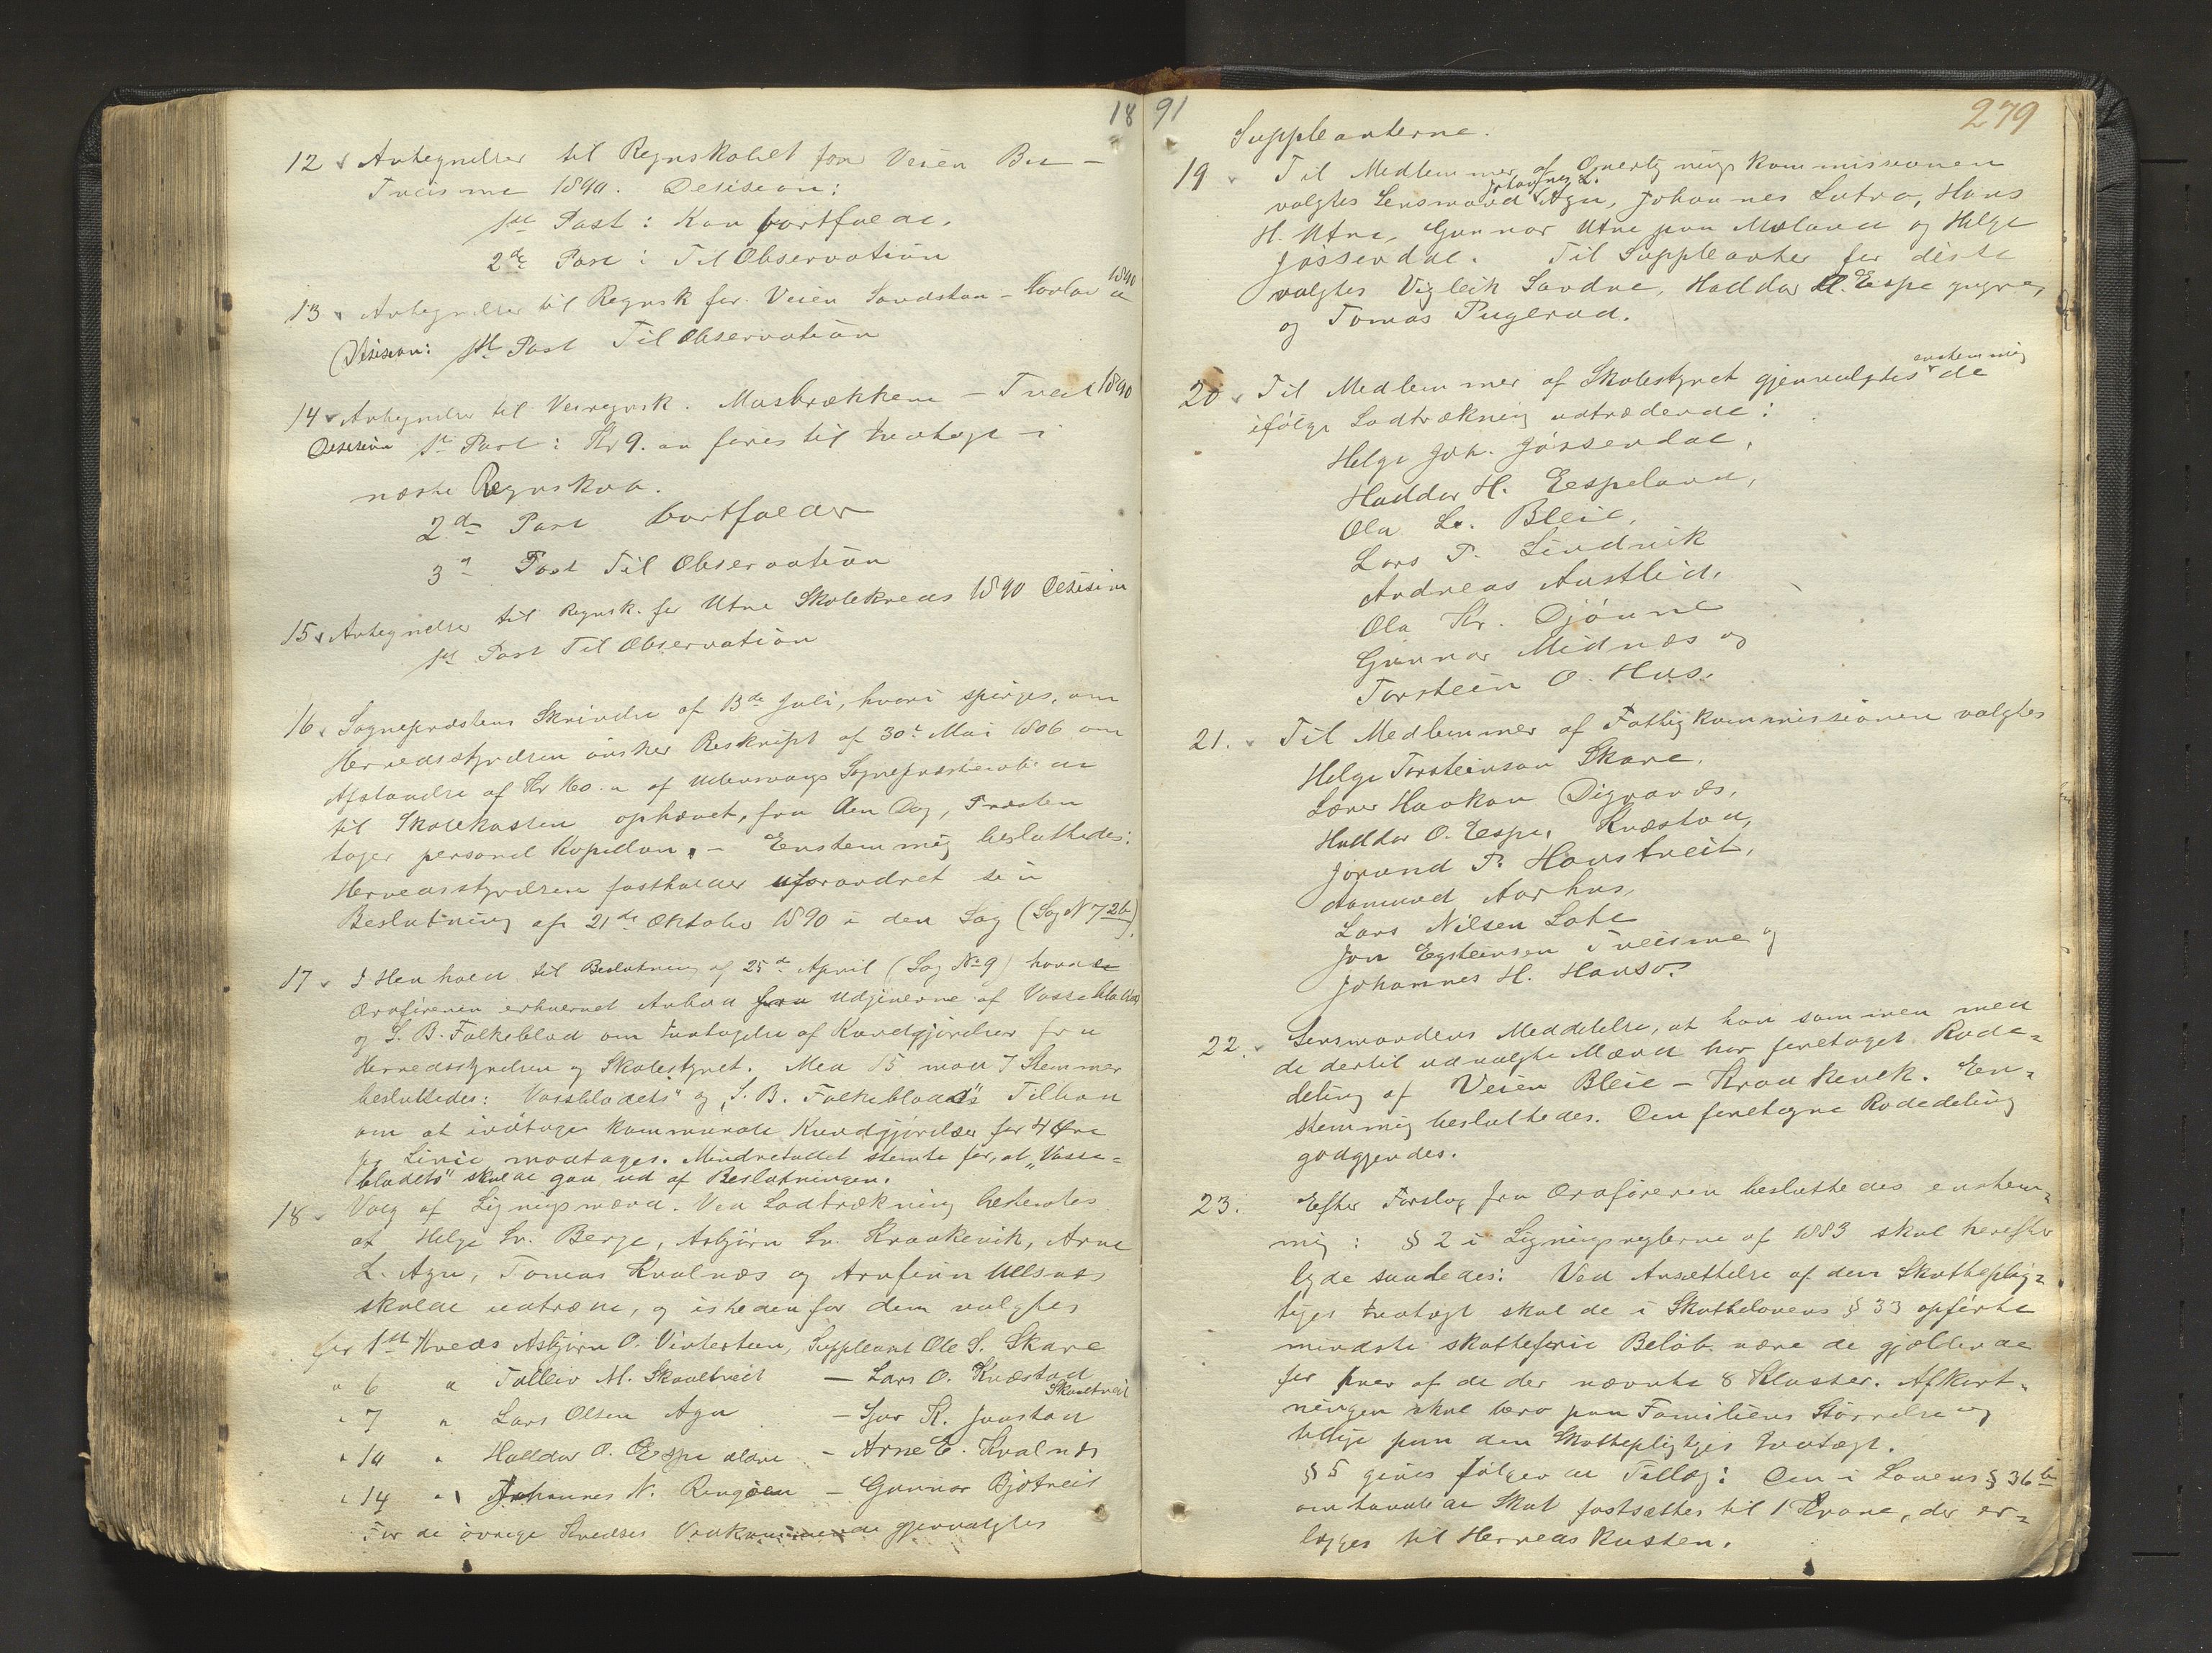 1891
12 Antegnelser til Regnskabet for Veien Bu -
Tveisme 1890. Desision:
1ste Post: Kan bortfalde.
2de Post: Til Observation
13 Antegnelser til Regnsk for Veien Sandstøa - 1890
Desision: 1ste Post Til Observation
14 Antegnelser til Veiregnsk. Masbrækkene - Tveit 1890
Desision 1ste Post: Kr 9.00 føres til Indtægt i
næste Regnskab.
2de Post bortfalder
3die Post Til Observation
15 Antegnelser til Regnsk. for Utne Skolekreds 1890 Desision
1ste Post Til Observation
16 Sognepræstens Skrivelse af 13de Juli, hvori spørges, om
Herredsstyrelsen ønsker Reskript af 30te Mai 1806 om
Afstaaelse af Kr 160.00 af Ullensvangs Sognepræstembede
til Skolekassen ophævet, fra den Dag, Præsten
tager personel Kapellan. - Enstemmig besluttedes:
Herredsstyrelsen fastholder uforandret sin
Beslutning af 21de Oktober 1890 i den Sag (Sag N 726).
17 I Henhold til Beslutning af 25de April (Sag No 9) havde
Ordføreren erhvervet Anbud fra Udgiverne af Vossebladet
og S. B. Folkeblad om Indtagelse af Kundgjørelser fra
Herredsstyrelsen og Skolestyret. Med 15 mod 7 Stemmer
besluttedes: "Vossebladets" og "S. B. Folkeblads" Tilbud
om at indtage kommunale Kundgjørelser for 4 Øre
pr Linie modtages. Mindretallet stemte for, at "Vosse=
bladets" skulde gaa ud af Beslutningen.
18 Valg af Ligningsmænd. Ved Lodtrækning bestemtes
at Helge Sv. Berge, Asbjørn Sv. Kraakevik, Arne
L. Aga, Tomas Kvalnæs og Arnfinn Ullsnæs
skulde udtræde, og istedenfor dem valgtes
for 1ste Kreds Asbjørn O. Vintertun, Suppleant Ole S. Skare
" 6 " Tolleiv M. Skaaltveit - Lars O. Knæstad
Skaaltveit
" 7 " Lars Olsen Aga - Sjur K. Jaastad
" 10 " Haldor O. Espe ældre - Arne E. Kvalnæs
" 14 " Johannes N. Ringøen - Gunnar Bjotveit
For de øvrige Kredses Vedkommende gjenvalgtes
279
Suppleanterne.
19 Til Medlemmer af Overligningskommissionen
valgtes Lensmand Aga, Johannes Lutro, Hans
H. Utne, Gunnar Utne paa Mæland og Helge
Jøssendal. Til Suppleanter for disse
valgtes Vigleik Sandve, Haldor A. Espe yngre,
og Tomas Pugerud.
20 Til Medlemmer af Skolestyret gjenvalgtes enstemmig de
ifølge Lodtrækning udtrædende:
Helge Joh. Jøssendal,
Haldor H. Espeland,
Ola L. Bleie,
Lars P. Lindvik
Andreas Austlid,
Ola Kr. Djønne
Gunnar Midnæs og
Torstein O. Hus.
21. Til Medlemmer af Fattigkommissionen valgtes
Helge Torsteinson Skare,
Lærer Haakon Digranæs,
Haldor O. Espe, Knæstad,
Jørund P. Haustveit,
Aamund Aarhus,
Lars Nilsen Lote
Jon Egsteinsen Tveisme og
Johannes H. Hauso.
22. Lensmandens Meddelelse, at han sammen med
de dertil udvalgte Mænd har foretaget Rode=
deling af Veien Bleie - Kraakevik. En=
stemmig besluttedes. Den foretagne Rodedeling
godkjendes.
23. Efter Forslag fra Ordføreren besluttedes enstem=
mig: § 2 i Ligningsreglerne af 1883 skal herefter
lyde saaledes: Ved Ansættelse af den Skattepligt=
tiges Indtægt skal de i Skattelovens § 33 opførte
mindste skattefrie Beløb være de gjældende
for hver af de der nævnte 8 Klasser. Afkort=
ningen skal bero paa Familiens Størrelse og
tillige paa den Skattepligtiges Indtægt.
§ 5 gives følgende Tillæg: Den i Lovens § 36 b
omhandlede Skat fastsættes til 1 Krone, der er=
lægges til Herredskassen.